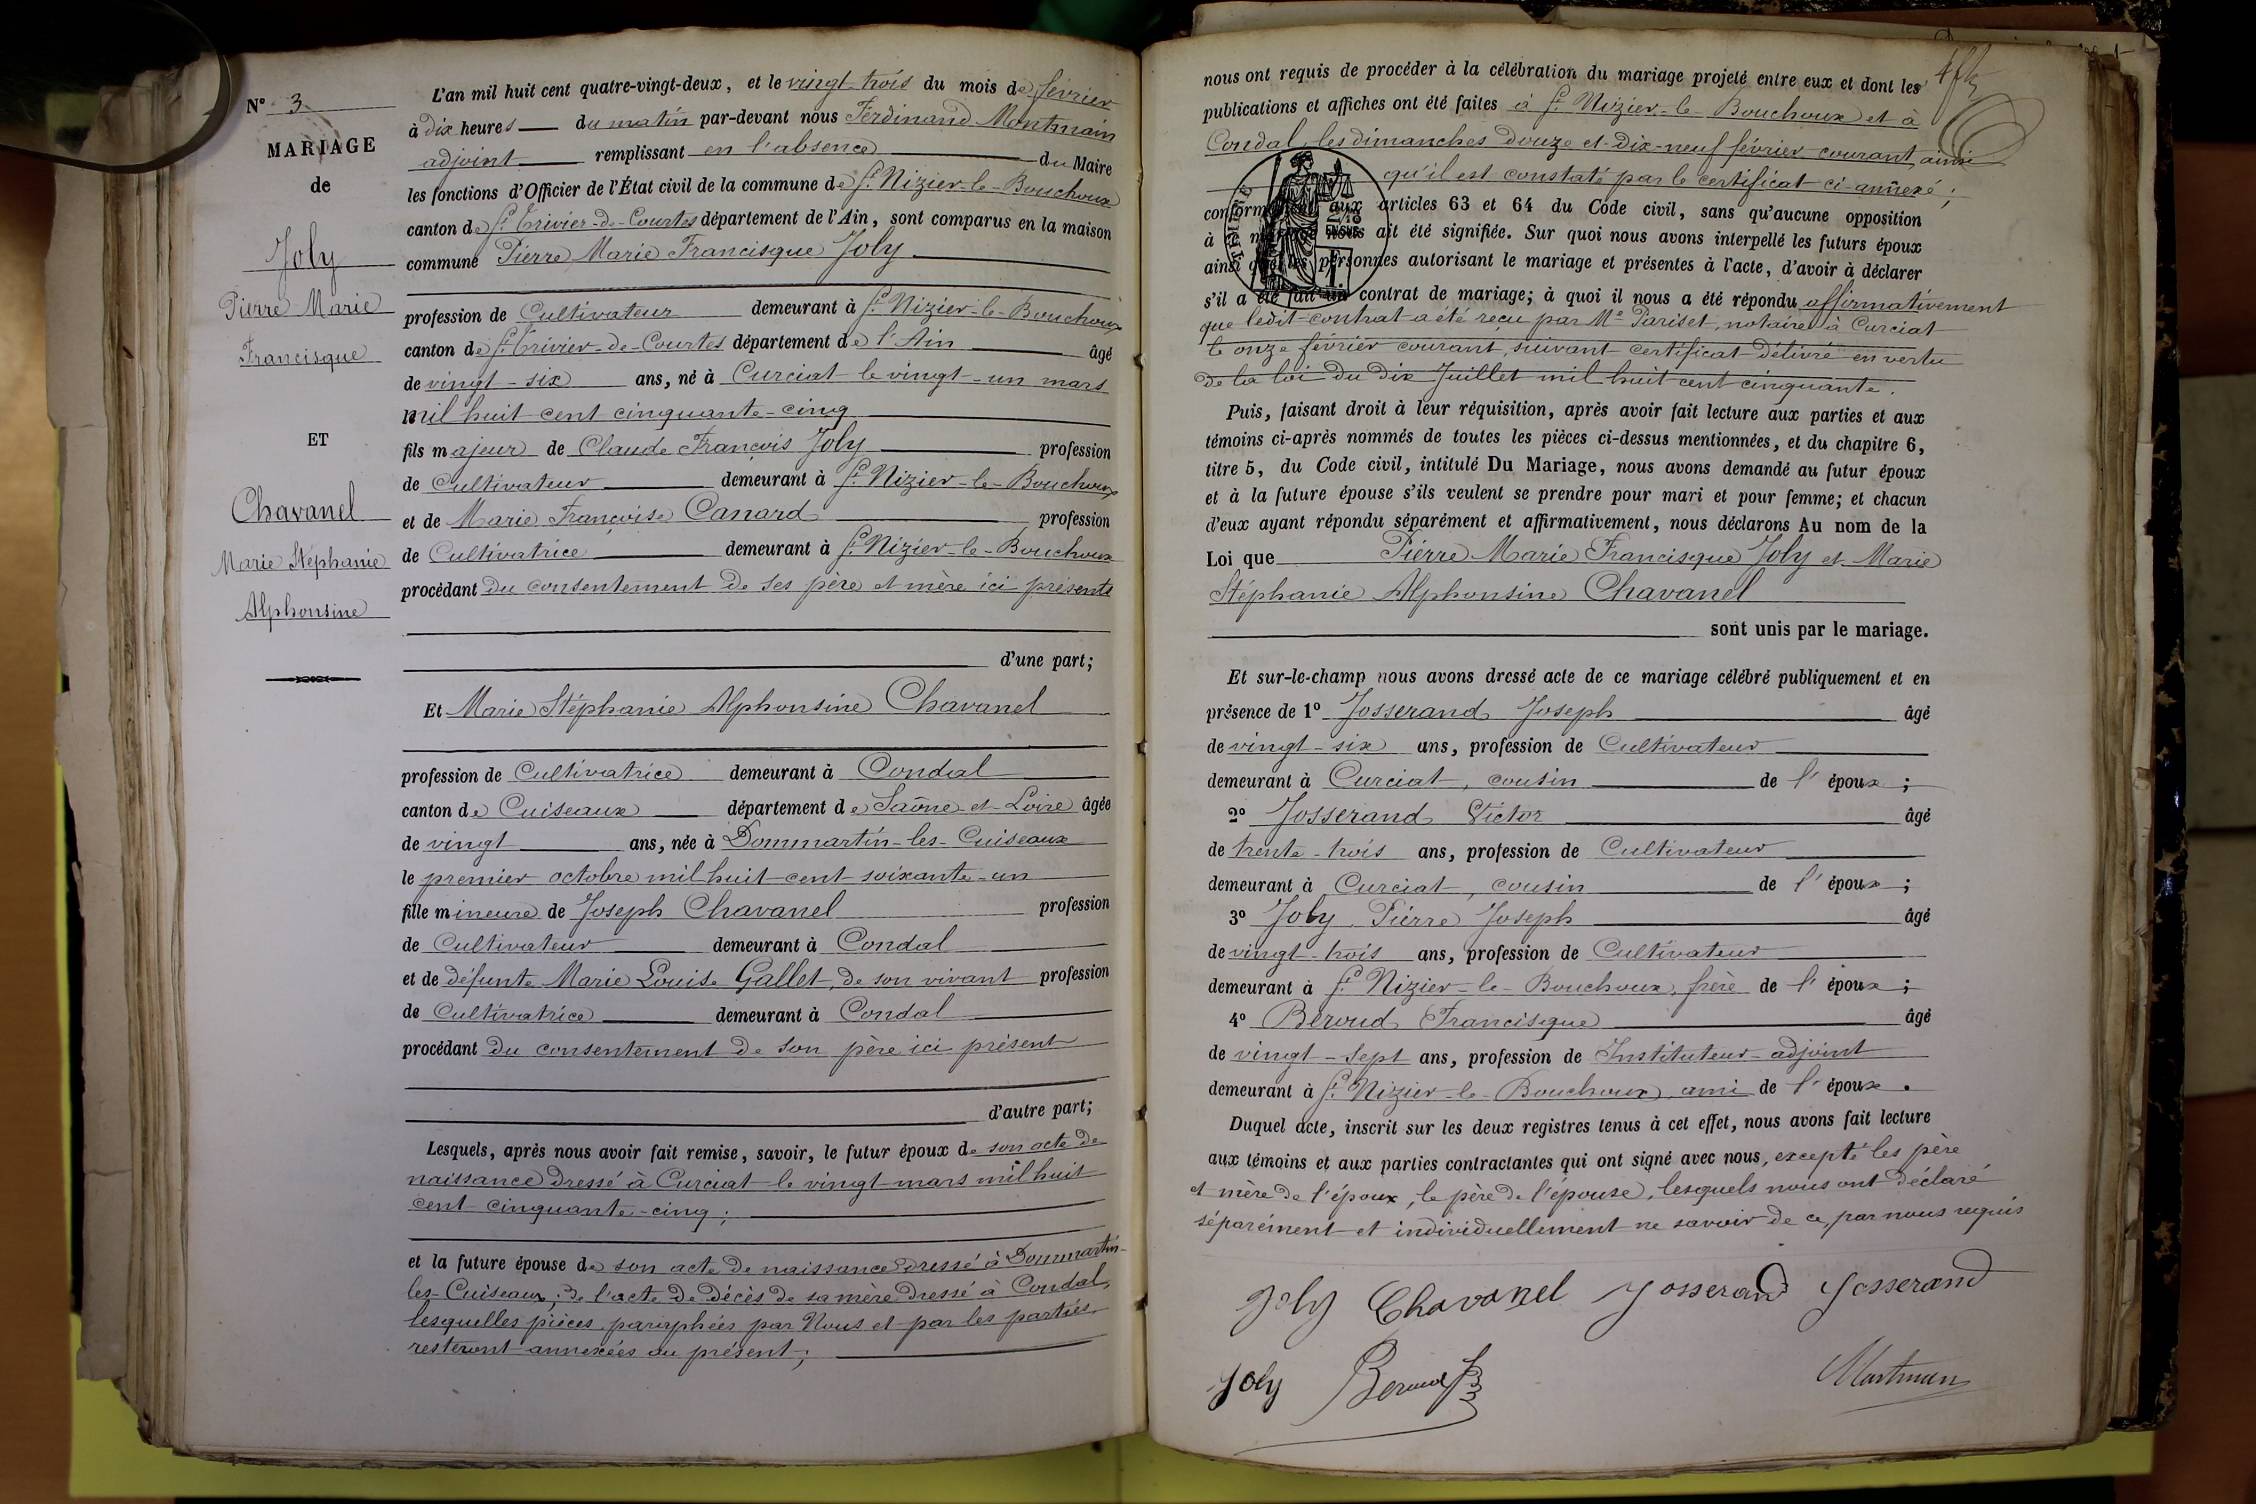 N° 3
MARIAGE
de
Joly
Pierre Marie
Francisque
ET
Chavanel
Marie Stéphanie
Alphonsine
L'an mil huit cent quatre-vingt-deux, et le vingt-trois du mois de février
à dix heures du matin par-devant nous Ferdinand Montmain
adjoint remplissant en l'absence du Maire
les fonctions d'Officier de l'État civil de la commune de St Nizier-le-Bouchoux
canton de St Trivier-de-Courtes département de l'Ain, sont comparus en la maison
commune Pierre Marie Francisque Joly
profession de Cultivateur demeurant à St Nizier-le-Bouchoux
canton de St Trivier-de-Courtes département de l'Ain âgé
de vingt-six ans, né à Curciat le vingt-un mars
mil huit cent cinquante-cinq
fils majeur de Claude François Joly profession
de Cultivateur demeurant à St Nizier-le-Bouchoux
et de Marie Françoise Canard profession
de Cultivatrice demeurant à St Nizier-le-Bouchoux
procédant du consentement de ses père et mère ici présents
d'une part;
Et Marie Stéphanie Alphonsine Chavanel
profession de Cultivatrice demeurant à Condal
canton de Cuiseaux département de Saône-et-Loire âgée
de vingt ans, née à Dommartin-les-Cuiseaux
le premier octobre mil huit cent soixante-un
fille mineure de Joseph Chavanel profession
de Cultivateur demeurant à Condal
et de défunte Marie Louise Gallet, de son vivant profession
de Cultivatrice demeurant à Condal
procédant du consentement de son père ici présent
d'autre part;
Lesquels, après nous avoir fait remise, savoir, le futur époux de son acte de
naissance dressé à Curciat le vingt mars mil huit
cent cinquante-cinq;
et la future épouse de son acte de naissance dressé à Dommartin-
les-Cuiseaux; de l'acte de décès de sa mère dressé à Condal,
lesquelles pièces paraphées par Nous et par les parties
resteront annexées au présent;
nous ont requis de procéder à la célébration du mariage projeté entre eux et dont les
publications et affiches ont été faites à St Nizier-le-Bouchoux et à
Condal, les dimanches douze et dix-neuf février courant, ainsi
qu'il est constaté par le certificat ci-annexé;
TIMBRE
conformément aux articles 63 et 64 du Code civil, sans qu'aucune opposition
à ce mariage nous ait été signifiée. Sur quoi nous avons interpellé les futurs époux
ainsi que les personnes autorisant le mariage et présentes à l'acte, d'avoir à déclarer
s'il a été fait un contrat de mariage; à quoi il nous a été répondu affirmativement
que ledit contrat a été reçu par Me Pariset, notaire à Curciat
le onze février courant, suivant certificat délivré en vertu
de la loi du dix Juillet mil huit cent cinquante.
Puis, faisant droit à leur réquisition, après avoir fait lecture aux parties et aux
témoins ci-après nommés de toutes les pièces ci-dessus mentionnées, et du chapitre 6,
titre 5, du Code civil, intitulé Du Mariage, nous avons demandé au futur époux
et à la future épouse s'ils veulent se prendre pour mari et pour femme; et chacun
d'eux ayant répondu séparément et affirmativement, nous déclarons Au nom de la
Loi que Pierre Marie Francisque Joly et Marie
Stéphanie Alphonsine Chavanel
sont unis par le mariage.
Et sur-le-champ nous avons dressé acte de ce mariage célébré publiquement et en
présence de 1° Josserand Joseph âgé
de vingt-six ans, profession de Cultivateur
demeurant à Curciat, cousin de l'époux;
2° Josserand Victor âgé
de trente-trois ans, profession de Cultivateur
demeurant à Curciat, cousin de l'époux;
3° Joly Pierre Joseph âgé
de vingt-trois ans, profession de Cultivateur
demeurant à St Nizier-le-Bouchoux, frère de l'époux;
4° Béroud Francisque âgé
de vingt-sept ans, profession de Instituteur-adjoint
demeurant à St Nizier-le-Bouchoux, ami de l'époux.
Duquel acte, inscrit sur les deux registres tenus à cet effet, nous avons fait lecture
aux témoins et aux parties contractantes qui ont signé avec nous, excepté les père
et mère de l'époux, le père de l'épouse, lesquels nous ont déclaré
séparément et individuellement ne savoir de ce par nous requis
Joly Chavanel Josserand Josserand
Joly Beroud Montmain